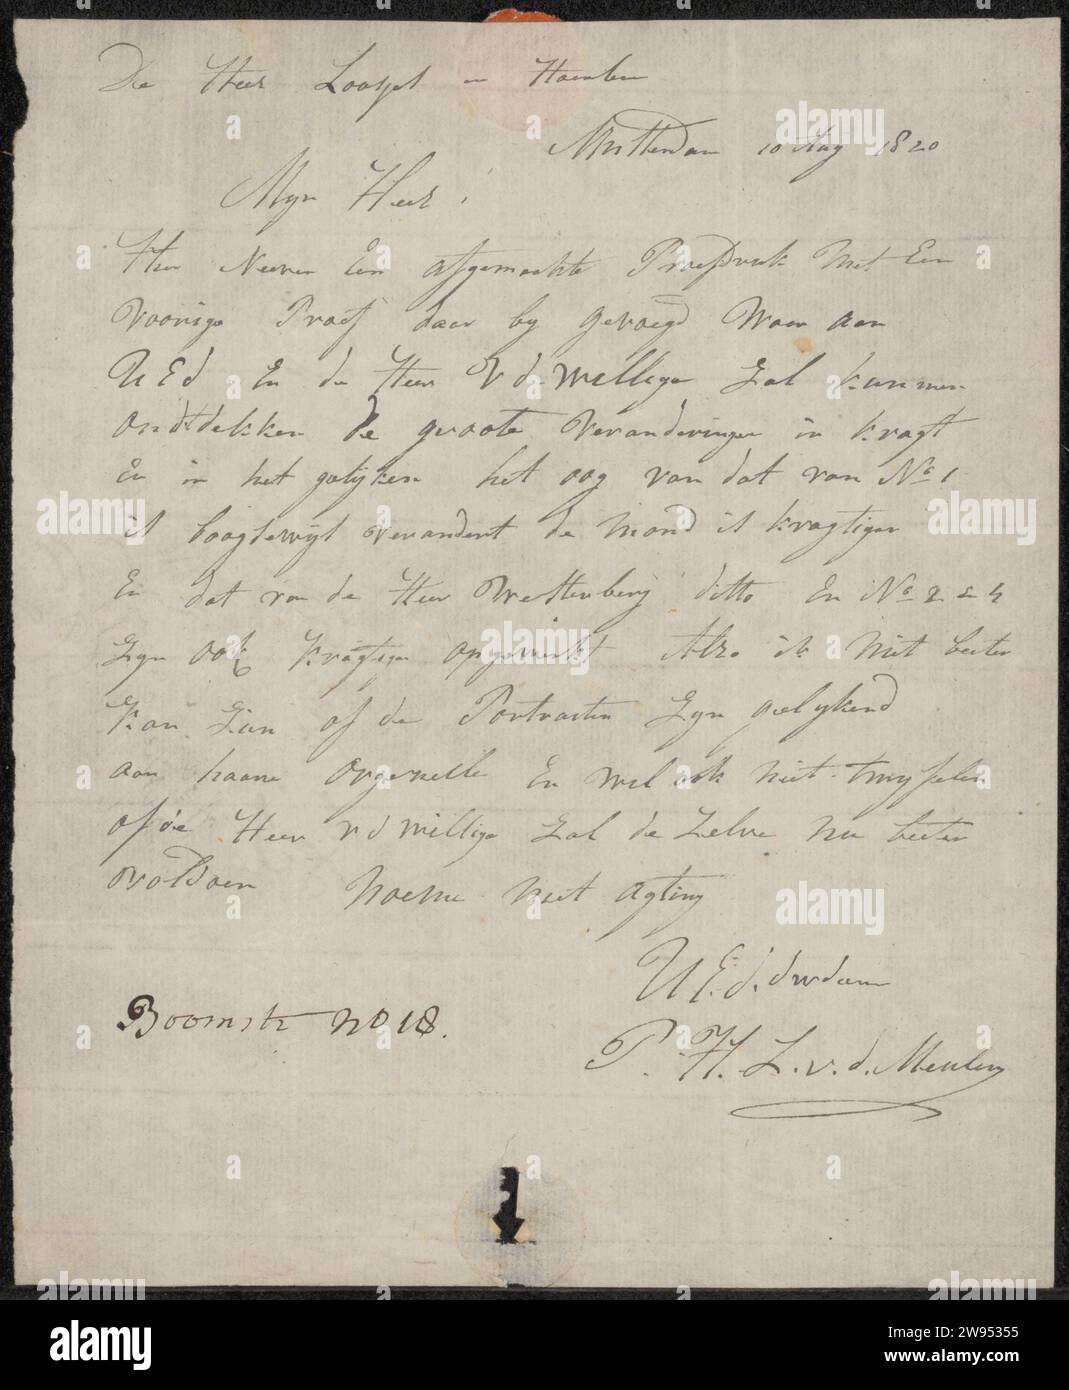 De Heer Loosjes in Haarlem
Amsterdam 10 Aug 1820
Myn Heer!
Hier Neeven Een afgemaakte Proefdruk Met Een
Voorige Proef daar by gevoegd Waar aan
UEd En de Heer V d Willige Zal kunnen
ondtdekken de groote Veranderingen in kragt
En in het gelijken het oog van dat van No 1
is laagtewijs verandert de mond is kragtiger
En dat van de Heer Westenberg ditto En No 2 & 4
Zyn ook kragtiger opgewerkt Alzo ik niet beeter
Kan Zien of de Portraiten Zyn gelykend
aan haare orgeneelle En wil ook niet twyfelen
of de Heer v d willige Zal de Zelve nu beeter
voldoen Noeme met agting
U E.d. dwdaar
P. H. L. v. d. Meulen
Boomstr No 18.
alamy
Image ID: 2W95355
www.alamy.com